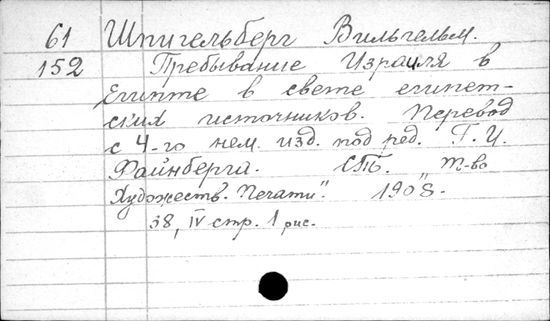 61 Шпигельберг Вильгельм.
152 Пребывание Израиля в
Египте в свете египет-
ских источников. Перевод
с 4-го нем. изд. под ред. Г. И.
Файнберга. СПБ. „Т-во
Художеств. Печати". 1908.
38, IV стр. 1 рис.